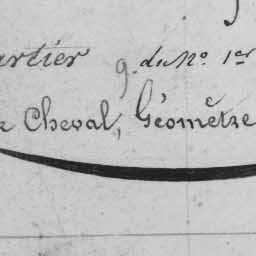 artier 9. du N.º 1er
Cheval, Géomètre